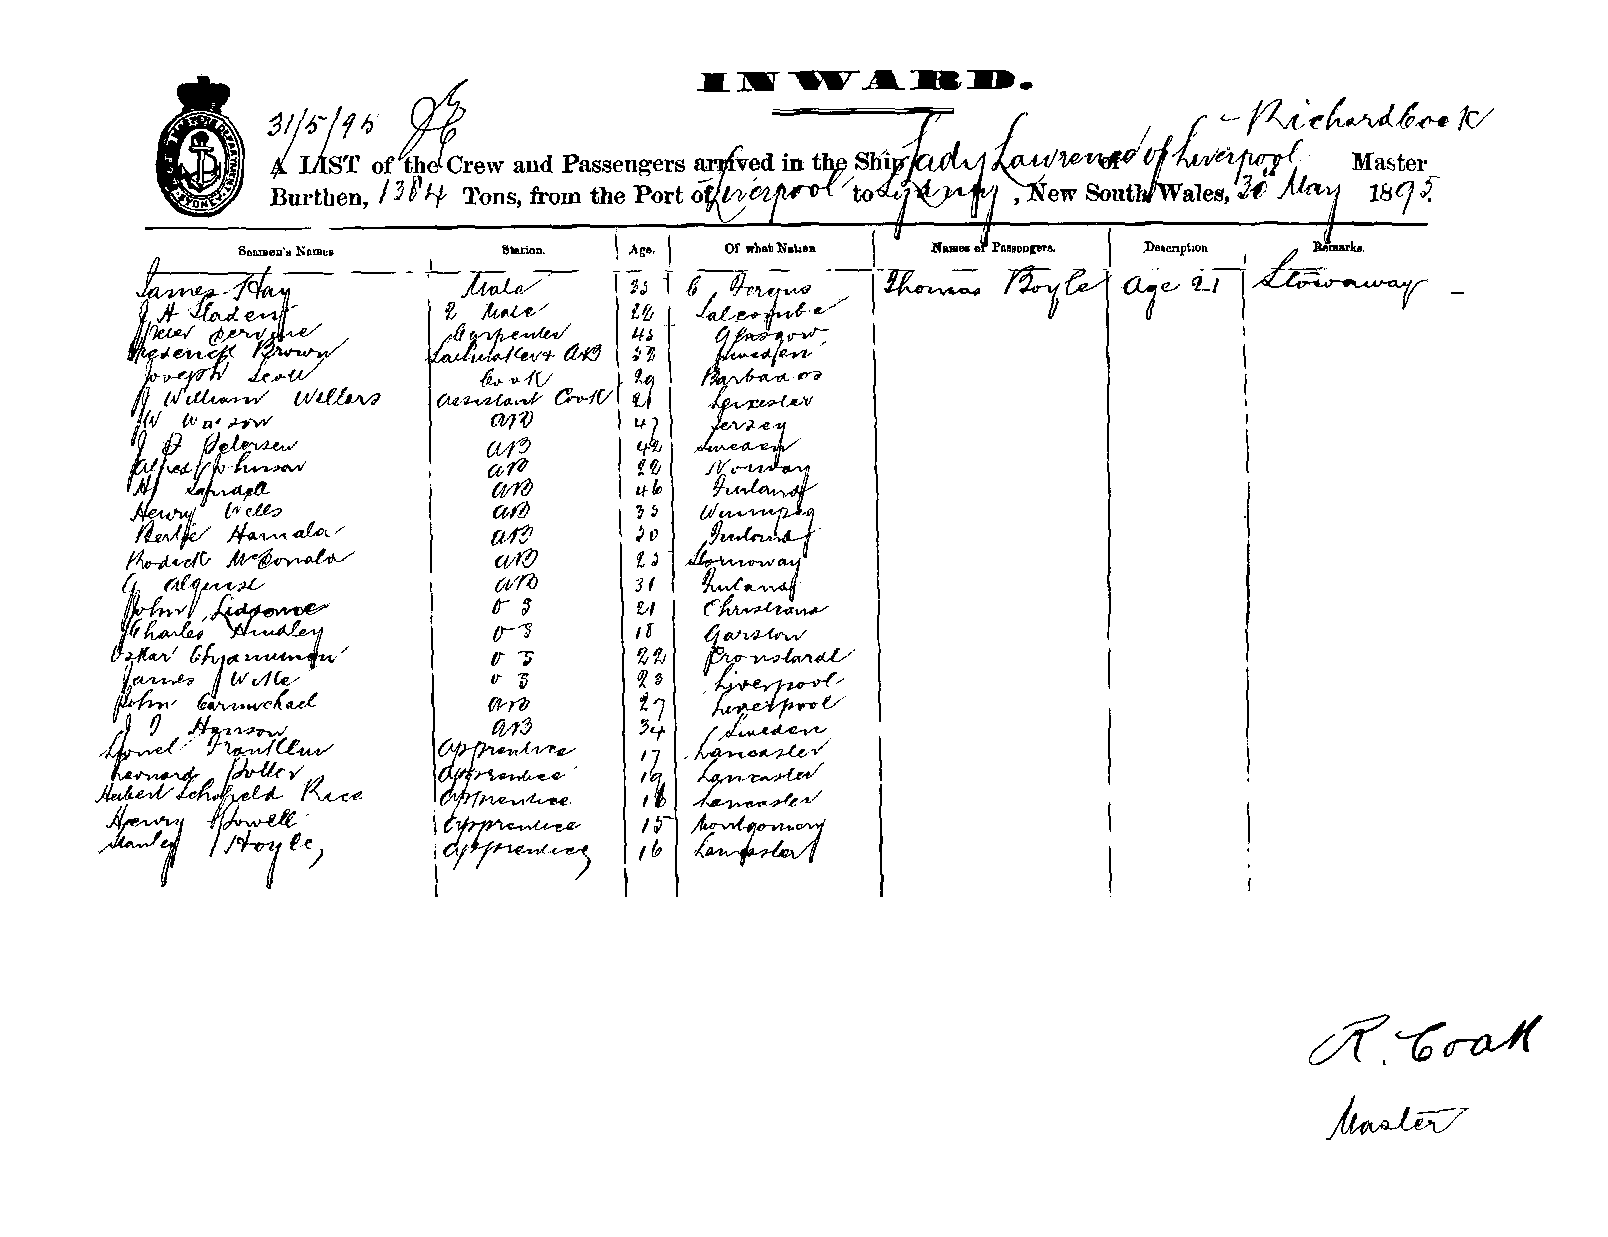 INWARD.
31/5/95
Richard Cook
A LIST of the Crew and Passengers arrived in the Ship Lady Lawrence of Liverpool Master
Burthen, 1384 Tons, from the Port of Liverpool to Sydney, New South Wales, 30 May 1895.
Seamen's Names Station. Age. Of what Nation Names of Passengers. Description Remarks.
James Hay Mate 33 Fergus Thomas Boyle age 21 Stowaway
J H Sladen 2 Mate 22 Salcombe
Peter Carpenter 43 Glasgow
Frederick Brown Sailmaker + AB 32 Sweden
Joseph Scott Cook 29 Barbados
J William Willers assistant Cook 21 Leicester
W Watson AB 47 Jersey
J Petersen AB 42 Sweden
Alfred Johnson AB 22 Norway
AB 46 Finland
Henry Wells AB 33 Winnipeg
Hamala AB 30 Finland
Rodick McDonald AB 23 Stornoway
AB 31 Finland
John O S 21 Christiana
Charles Hindley O S 18 Garston
Oskar O S 22 Cronstardt
James O S 23 Liverpool
John Carmichael AB 27 Liverpool
J Hanson AB 34 Sweden
Lionel Franklin Apprentice 17 Lancaster
Leonard Potter Apprentice 19 Lancaster
Hubert Schofield Rice Apprentice 16 Lancaster
Henry Powell Apprentice 15 Montgomery
Stanley Hoyle, Apprentice 16 Lancaster
R. Cook
Master